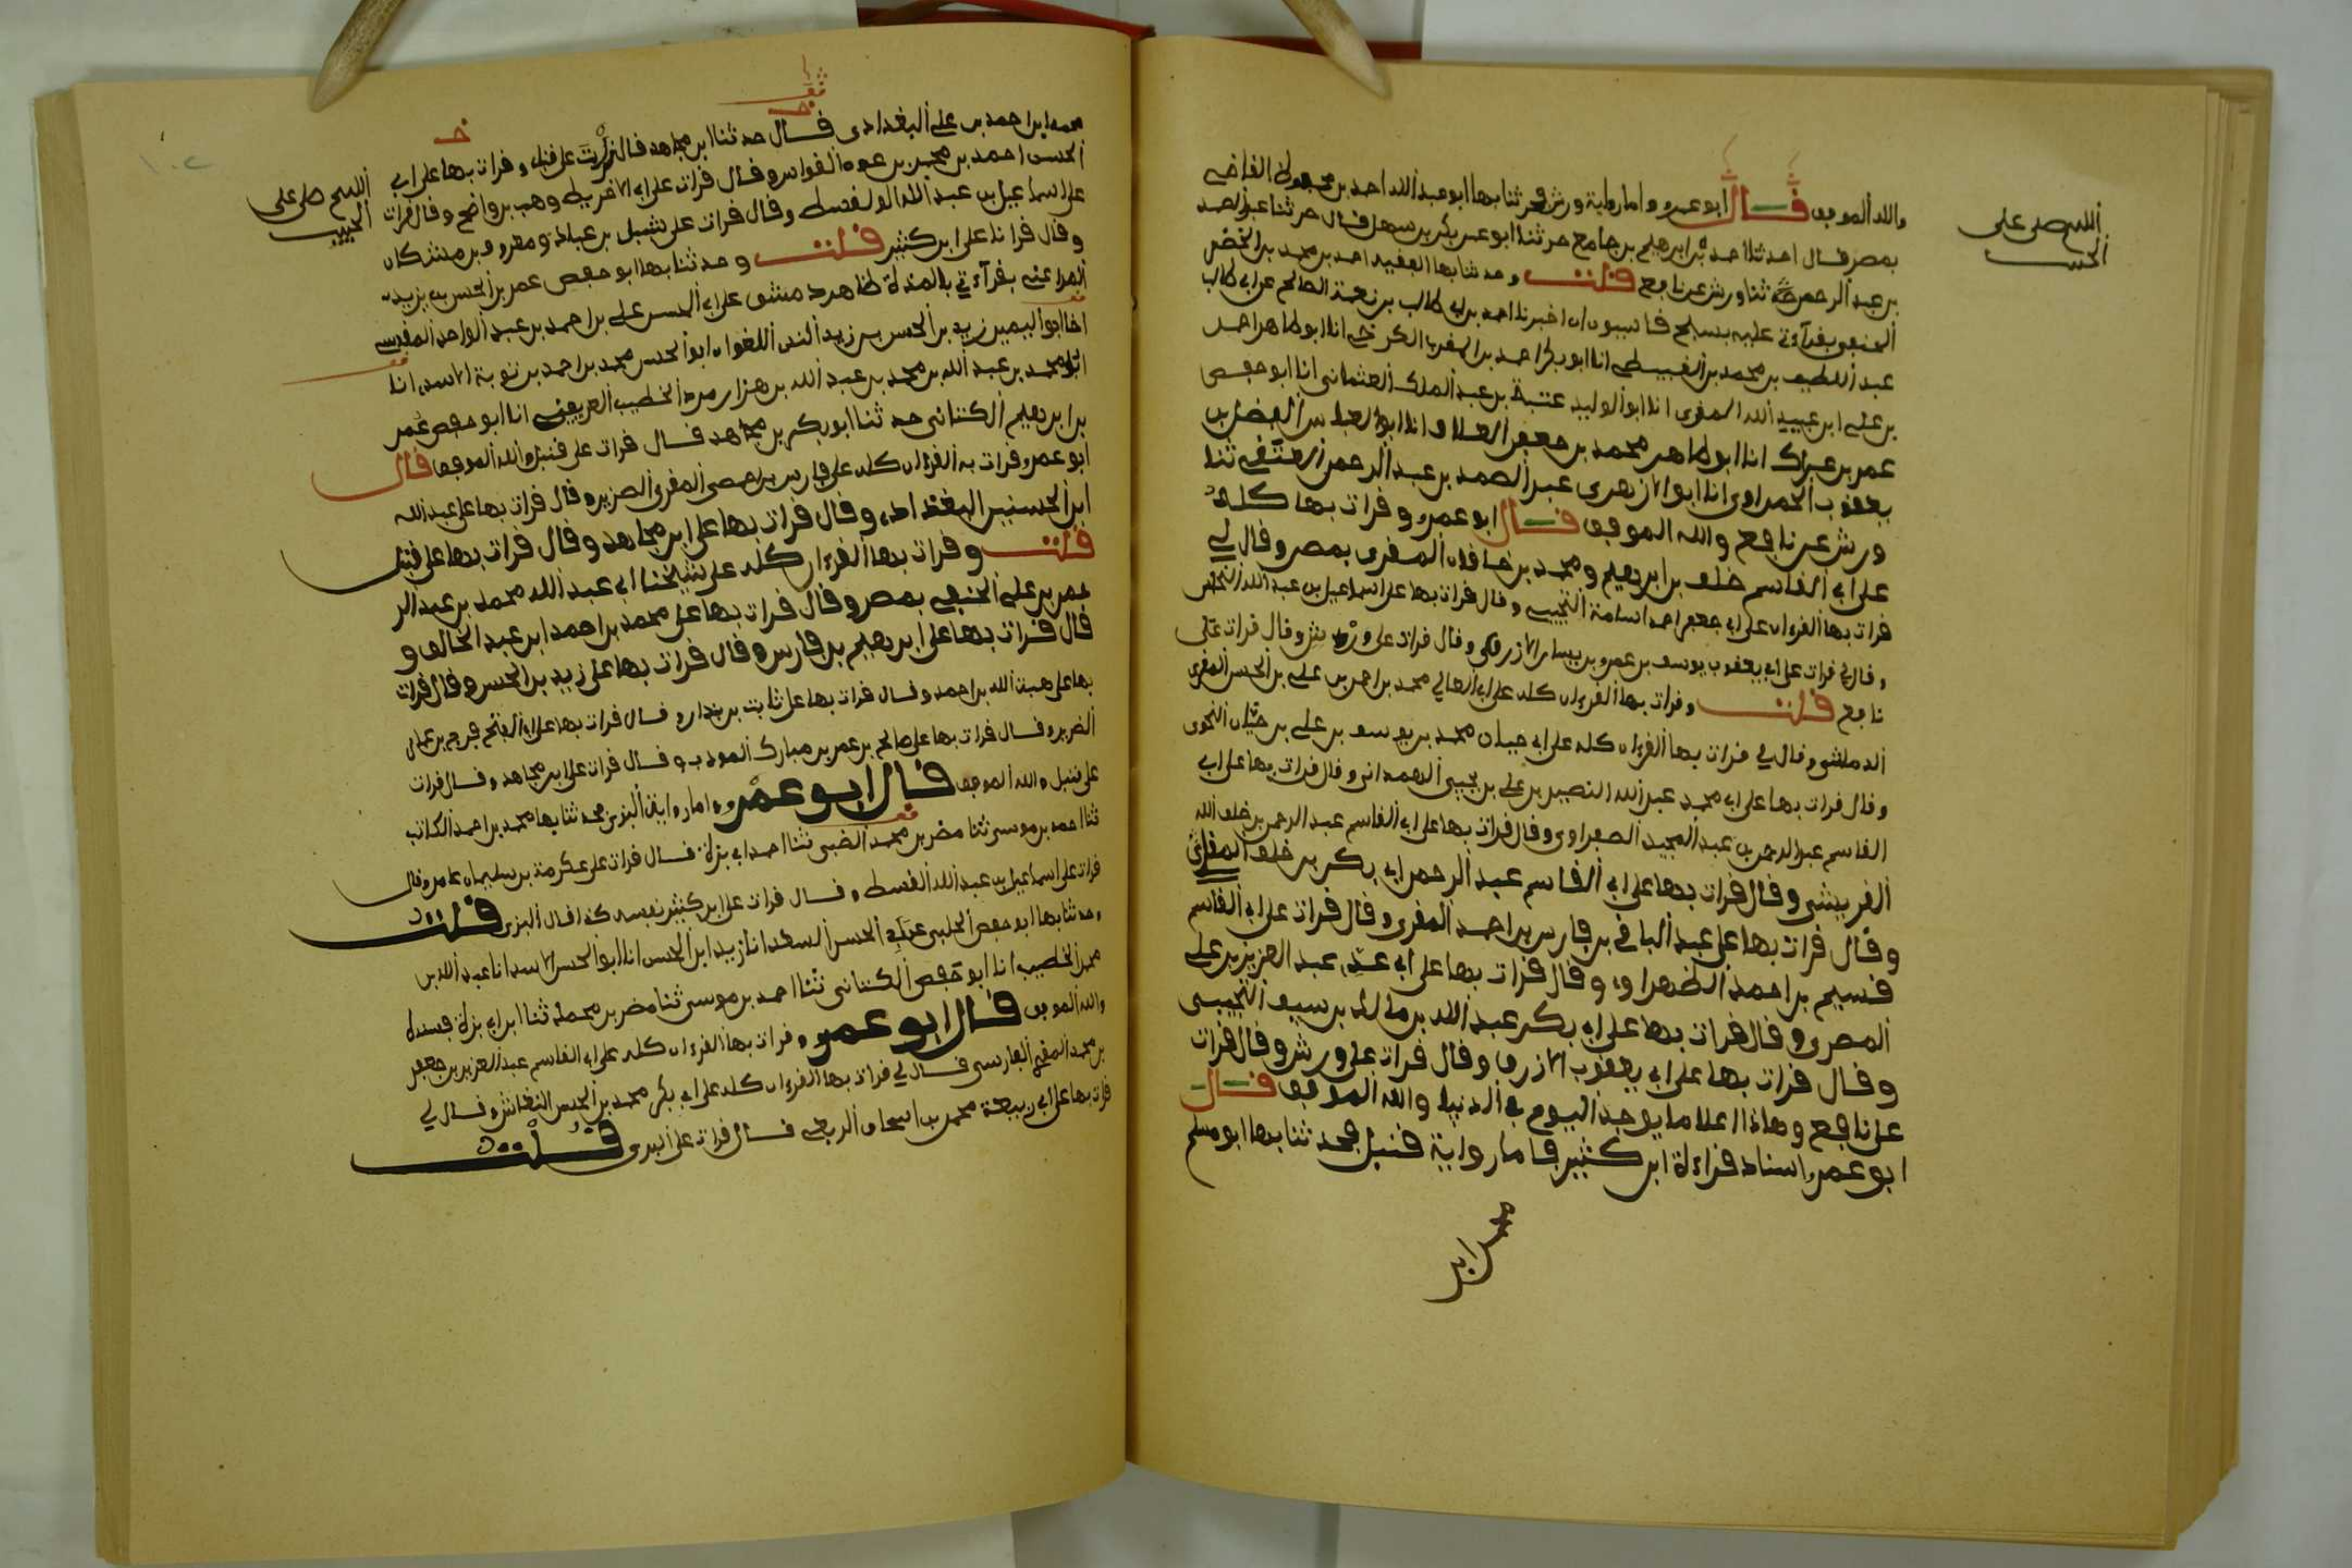 اللهم صل على
الحبيب
والله الموفق قال ابو عمرو واما رواية ورش فحدثنا بها ابو عبد الله احمد بن محفوظ القاضي
بمصر قال احدثنا احمد بن ابرهيم بن جامع حدثنا ابو عمر بكر بن سهل قال حدثنا عبد الصمد
بن عبد الرحمن ثنا ورش عن نافع قلت وحدثنا بها الفقيه احمد بن محمد بن الخضر
الحنفي بقراءتي عليه بسفح قاسيون ان اخبرنا احمد بن ابي طالب بن نعمة الصالحي عن ابي طالب
عبد اللطيف بن محمد بن القبيطي انا ابو بكر احمد بن المقرب الكرخي انا ابو طاهر احمد
بن علي ابن عبيد الله المقرئ انا ابو الوليد عتبة بن عبد الملك العثماني انا ابو حفص
عمر بن عراك انا ابو طاهر محمد بن جعفر العلاف انا ابو العباس الفضل بن
يعقوب الحمراوي انا ابو الازهري عبد الصمد بن عبد الرحمن العتقي ثنا
ورش عن نافع والله الموفق قال ابو عمرو وقرات بها كله
على ابي القاسم خلف بن ابرهيم ومحمد بن خاقان المقرئ بمصر وقال لي
قرات بها القرءان على ابي جعفر احمد اسامة التجيبي وقال قرات بها على اسماعيل بن عبد الله النحاس
وقال لي قرات على ابي يعقوب يوسف بن عمرو بن يسار الازرق وقال قرات على ورش وقال قرات على
نافع قلت وقرات بها القرءان كله على ابي المعالي محمد بن احمد بن علي بن الحسن المقرئ
الدمشقي وقال لي قرات بها القرءان كله على ابي حيان محمد بن يوسف بن علي بن حيان النحوي
وقال قرات بها على ابي محمد عبد الله النصير بن علي بن يحيى الهمداني وقال قرات بها على ابي
القاسم عبد الرحمن بن عبد المجيد الصفراوي وقال قرات بها على ابي القاسم عبد الرحمن بن خلف الله
القريشي وقال قرات بها على ابي القاسم عبد الرحمن ابي بكر بن خلف المقرئ
وقال قرات بها على عبد الباقي بن فارس بن احمد المقرئ وقال قرات على ابي القاسم
قسيم بن احمد الظهراوي وقال قرات بها على ابي عدي عبد العزيز بن علي
المصري وقال قرات بها على ابي بكر عبد الله بن مالك بن سيف التجيبي
وقال قرات بها على ابي يعقوب الازرق وقال قرات على ورش وقال قرات
على نافع وهاذا اعلا ما يوجد اليوم في الدنيا والله الموفق قال
ابو عمرو اسناد قراءة ابن كثير فاما رواية قنبل فحدثنا بها ابو مسلم
اللهم صل على
الحبيب
محمد ابن احمد بن علي البغدادي قال حدثنا ابن مجاهد قال قرات على قنبل وقرات بها على ابي
الحسن احمد بن محمد بن عون القواس وقال قرات على ابي الاخريط وهب بن واضح وقال قرات
على اسماعيل بن عبد الله القسط وقال قرات على شبل بن عباد ومعروف بن مشكان
وقال قرانا على ابن كثير قلت وحدثنا بها ابو حفص عمر بن الحسن بن يزيد
المراغي بقراءتي بالمزة ظاهر دمشق على ابي الحسن علي بن احمد بن عبد الواحد المقدسي
انا ابو اليمن زيد بن الحسن بن زيد اللغوي انا ابو الحسن محمد بن احمد بن توبة الاسدي انا
ابو محمد بن عبد الله بن محمد بن عبد الله بن هزارمرد الخطيب الصريفيني انا ابو حفص عمر
بن ابرهيم الكتاني حدثنا ابو بكر بن مجاهد قال قرات على قنبل والله الموفق قال
ابو عمرو قرات به القرءان كله على فارس بن حمصي المقرئ الضرير وقال قرات بها على عبد الله
ابن الحسين البغدادي وقال قرات بها على ابن مجاهد وقال قرات بها على قنبل
قلت وقرات بها القرءان كله على شيخنا ابي عبد الله محمد بن عبد الر
عمر بن علي الحنفي بمصر وقال قرات بها على محمد بن احمد ابن عبد الخالق و
قال قرات بها على ابرهيم بن فارس وقال قرات بها على زيد بن الحسن وقال قرات
بها على هبة الله بن احمد وقال قرات بها على ثابت بن بندار وقال قرات بها على ابي الفتح فرج بن عمر
الضرير وقال قرات بها على صالح بن عمر بن مبارك المودب وقال قرات على ابن مجاهد وقال قرات
على قنبل والله الموفق قال ابو عمرو واما رواية البزي فحدثنا بها محمد بن احمد الكاتب
ثنا احمد بن موسى ثنا مضر بن محمد الضبي ثنا احمد ابي بزة قال قرات على عكرمة بن سليمان عامر وقال
قرات على اسماعيل بن عبد الله القسط وقال قرات على ابن كثير نفسه كذا قال البزي قلت
وحدثنا بها ابو حفص الحلبي عن ابي الحسن السعدي انا زيد ابن الحسن انا ابو الحسن الاسدي انا عبد الله بن
محمد الخطيب انا ابو حفص الكتاني ثنا احمد بن موسى ثنا مضر بن محمد ثنا ابن ابي بزة بسنده
والله الموفق قال ابو عمرو وقرات بها القرءان كله على ابي القاسم عبد العزيز بن جعفر
بن محمد المقرئ الفارسي قال لي قرات بها القرءان كله على ابي بكر محمد بن الحسن النقاش وقال لي
قرات بها على ابي ربيعة محمد بن اسحاق الربعي قال قرات على البزي قلت